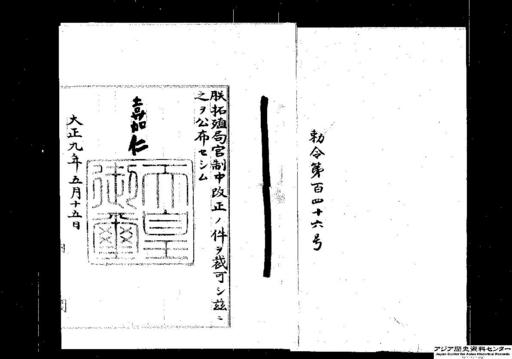 勅令第百四十六号
朕拓殖局官制中改正ノ件ヲ裁可シ茲ニ
之ヲ公布セシム
嘉仁
天皇
御璽
大正九年五月十五日
アジア歴史資料センター
Japan Center for Asian Historical Records